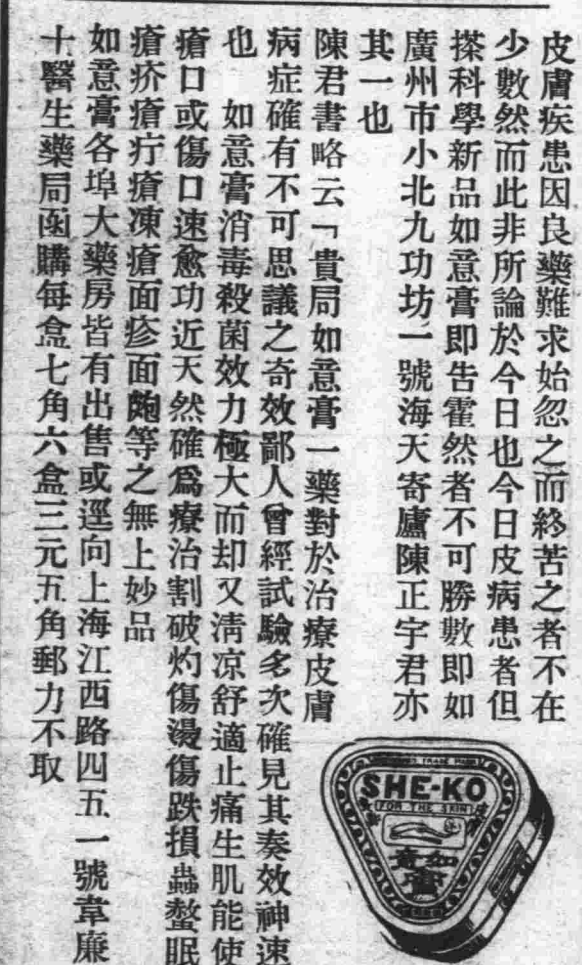 皮膚疾患因良藥難求始忽之而終苦之者不在
少數然而此非所論於今日也今日皮病患者但
搽科學新品如意膏即告霍然者不可勝數即如
廣州市小北九功坊一號海天寄廬陳正宇君亦
其一也
陳君書略云「貴局如意膏一藥對於治療皮膚
病症確有不可思議之奇效鄙人曾經試驗多次確見其奏效神速
也 如意膏消毒殺菌效力極大而却又淸凉舒適止痛生肌能使
瘡口或傷口速愈功近天然確爲療治割破灼傷湯傷跌損蟲螫眠
瘡疥瘡疔瘡凍瘡面疹面皰等之無上妙品
如意膏各埠大藥房皆有出售或逕向上海江西路四五一號韋廉
十醫生藥局函購每盒七角六盒三元五角郵力不取
TRADE MARK
SHE-KO
FOR THE SKIN
如意膏